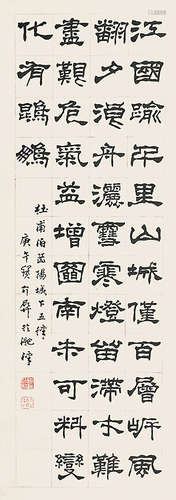 江國踰千里山城僅百層岸風
翻夕浪舟灑雪寒燈留滯才難
盡艱危氣益增圖南未可料變
化有鵾鵬
杜甫泊岳陽城下五律
庚午